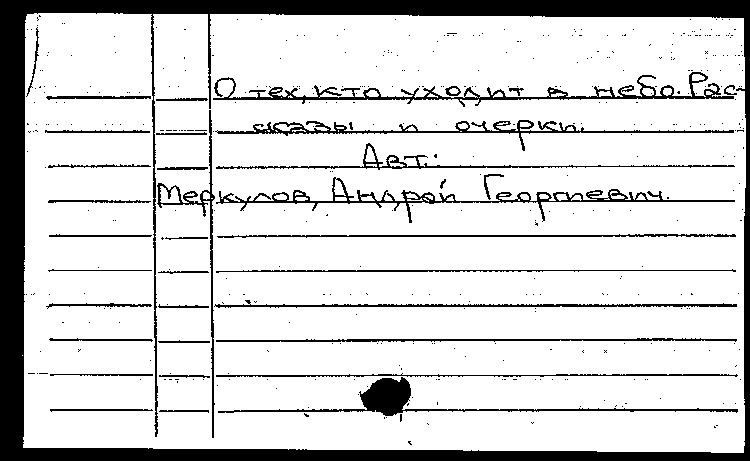 О тех, кто уходит в небо. Рас-
сказы и очерки.
Авт.:
Меркулов, Андрей Георгиевич.